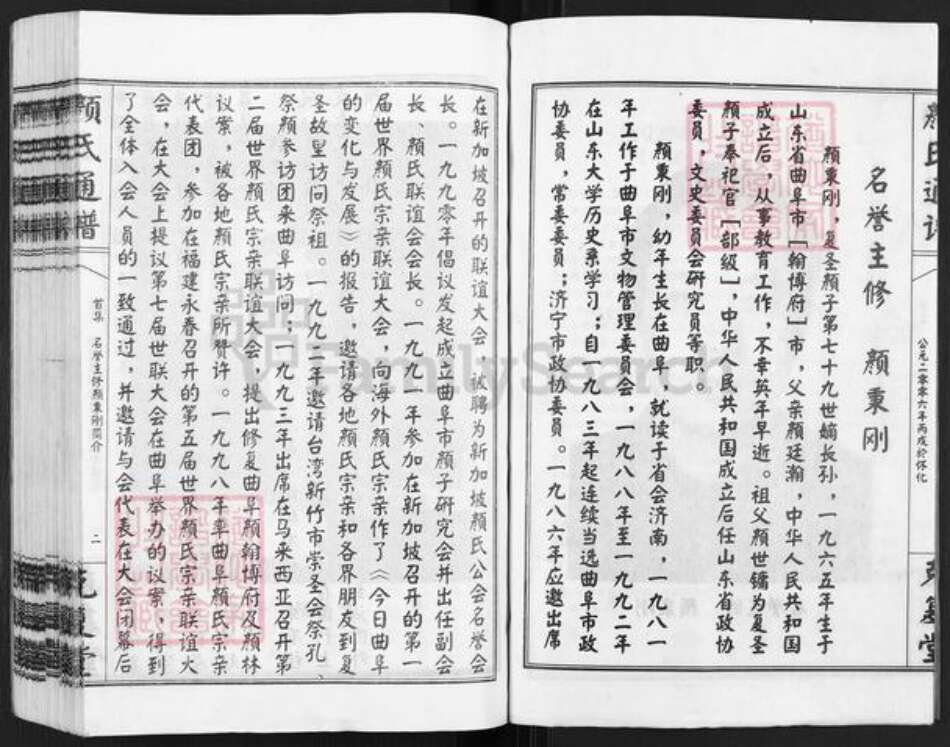 公元二零零六年丙戌於怀化
名誉主修 颜秉刚
颜秉刚，复圣颜子第七十九世嫡长孙，一九六五年生于
山东省曲阜市「翰博府」市，父亲颜廷瀚，中华人民共和国
成立后，从事教育工作，不幸英年早逝。祖父颜世镛为复圣
颜子奉祀官「部级」，中华人民共和国成立后任山东省政协
委员，文史委员会研究员等职。
颜秉刚，幼年生长在曲阜，就读于省会济南，一九八一
年工作于曲阜市文物管理委员会，一九八八年至一九九二年
在山东大学历史系学习；自一九八三年起连续当选曲阜市政
协委员，常委委员；济宁市政协委员。一九八六年应邀出席
在新加坡召开的联谊大会，被聘为新加坡颜氏公会名誉会
长。一九九零年倡议发起成立曲阜市颜子研究会并出任副会
长、颜氏联谊会会长。一九九一年参加在新加坡召开的第一
届世界颜氏宗亲联谊大会，向海外颜氏宗亲作了《今日曲阜
的变化与发展》的报告，邀请各地颜氏宗亲和各界朋友到复
圣故里访问祭祖。一九九二年邀请台湾新竹市崇圣会祭孔、
祭颜参访团来曲阜访问；一九九三年出席在马来西亚召开第
二届世界颜氏宗亲联谊大会，提出修复曲阜颜翰博府及颜林
议案，被各地颜氏宗亲所赞许。一九九八年率曲阜颜氏宗亲
代表团，参加在福建永春召开的第五届世界颜氏宗亲联谊大
会，在大会上提议第七届世联大会在曲阜举办的议案，得到
了全体入会人员的一致通过，并邀请与会代表在大会闭幕后
首集 名誉主修颜秉刚简介 二
颜氏通谱
FamilySearch